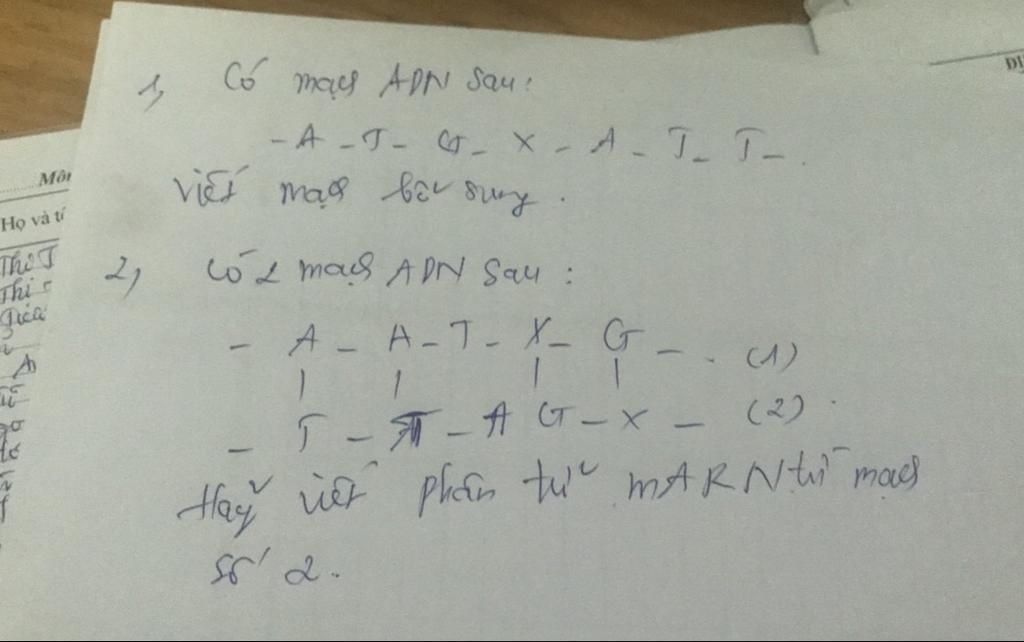 1, Có mạch ADN sau:
- A - T - G - X - A - T - T - .
Viết mạch bổ sung.
2, Có 2 mạch ADN sau:
- A - A - T - X - G - . (1)
| | | |
- T - T - A G - X - (2).
Hãy viết phân tử mARN từ mạch
số 2.
Môn
Họ và tê
Thị T
Thị
DI